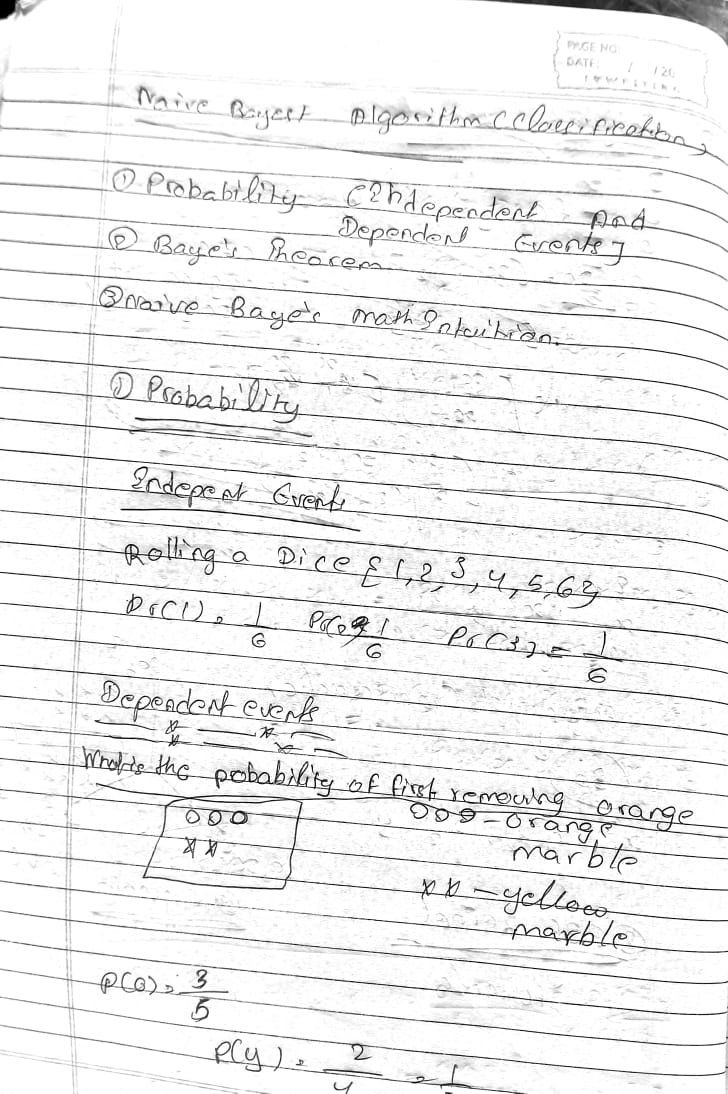 PAGE NO:
DATE: / /20
Naive Bayest Algorithm (Classification)
① Probability [Independent And
Dependent Events]
② Baye's Theorem
③ Naive Baye's math Intuition.
① Probability
Indepent Events
Rolling a Dice {1,2,3,4,5,6}
Pr(1) = 1/6 Pr(2) = 1/6 Pr(3) = 1/6
Dependent events
What is the pobability of first removing orange
000 - orange
marble
xx - yellow
marble
000
xx
P(O) = 3/5
P(y) = 2/4 = 1